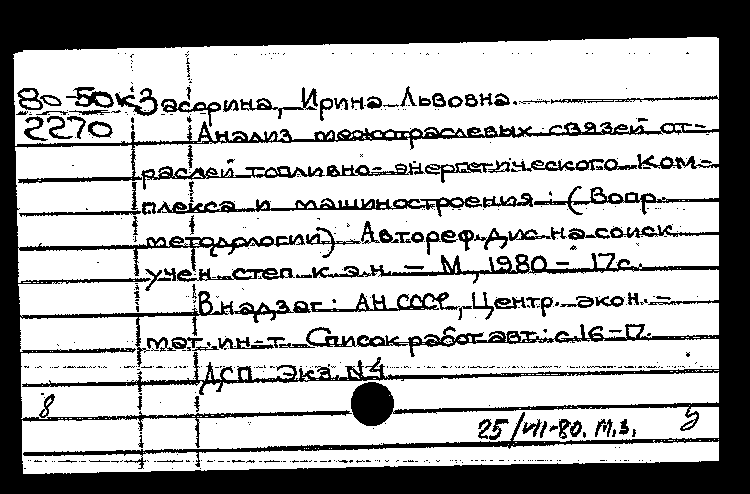 80-50к Засорина, Ирина Львовна.
2270 Анализ межотраслевых связей от-
раслей топливно-энергетического ком-
плекса и машиностроения: (Вопр.
методологии) Автореф. дис. на соиск.
учен. степ. к. э. н. – М., 1980 – 17 с.
В надзаг: АН СССР, Центр. экон.-
мат. ин-т. Список работ авт.: с. 16-17.
ДСП. Экз. N4
8
25/VII-80. М.З.